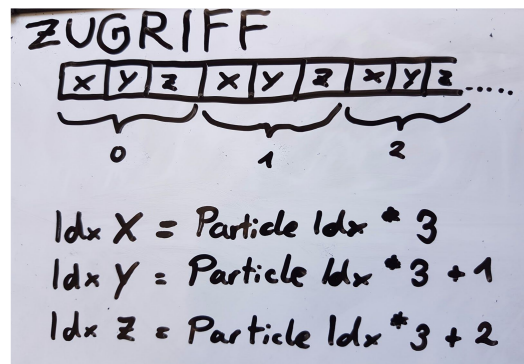 ZUGRIFF
X Y Z X Y Z X Y Z .....
0 1 2
Idx X = Particle Idx * 3
Idx Y = Particle Idx * 3 + 1
Idx Z = Particle Idx * 3 + 2